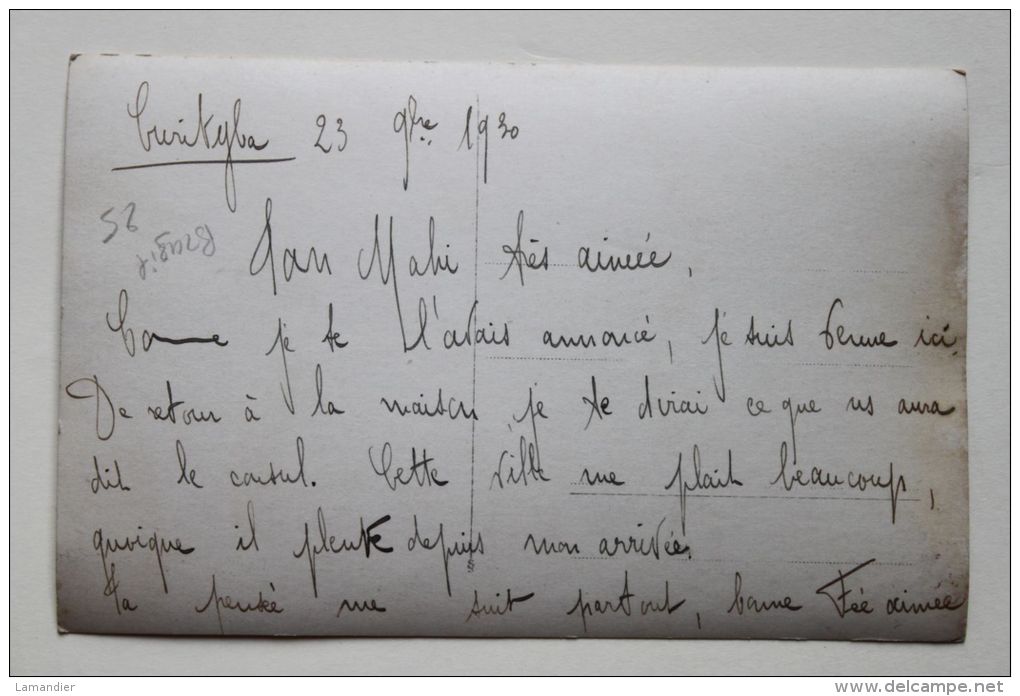 Curityba 23 9bre 1930
25
Brésil
Man Mahi très aimée,
Comme je te l'avais annoncé, je suis venue ici.
De retour à la maison, je te dirai ce que ns aura
dit le consul. Cette ville me plait beaucoup,
quoique il pleuve depuis mon arrivée.
Ta pensée me suit partout, bonne Fée aimée
Lamandier
www.delcampe.net